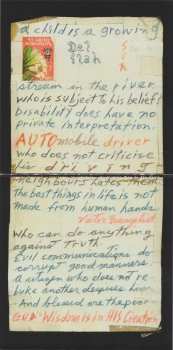 a child is a growing
stream in the river
who is subject to his beliefs
Disability does have no
private interpretation.
AUTOmobile driver
who does not criticise
his driving
neighbours hates them
the best things in life is not
made from human hands
Who can do anything
against Truth
Evil communications do
corrupt good manners
A citizen who does not re
buke another despise him
And blessed are the poor
GUN Wisdom is in His Creation